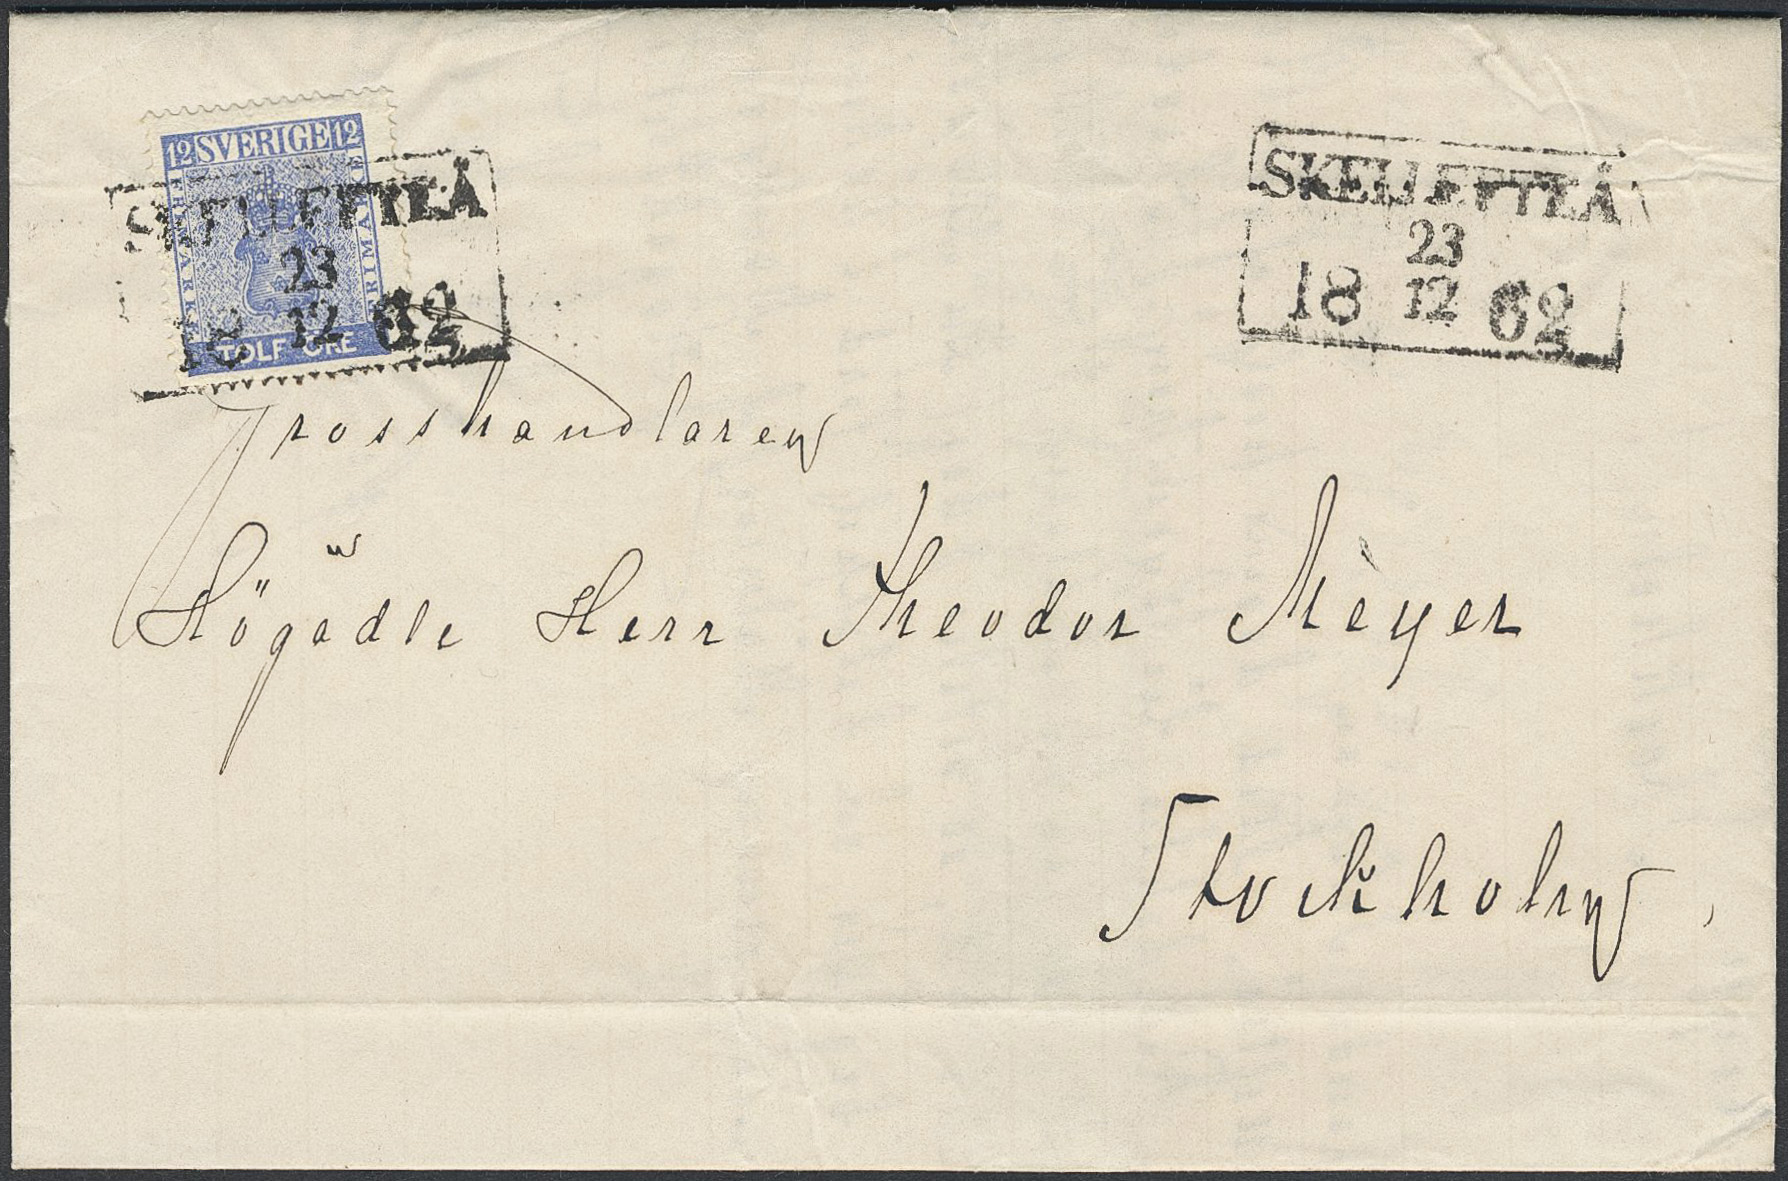 12 SVERIGE 12
FRIMÄRKE
FRIMÄRKE
TOLF ÖRE
SKELLEFTEÅ
23
18 12 62
SKELLEFTEÅ
23
18 12 62
Grosshandlaren
Högädle Herr Theodor Meyer
Stockholm